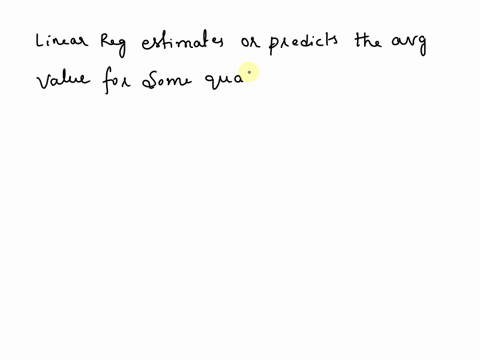 Linear Reg estimates or predicts the avg
value for some qua